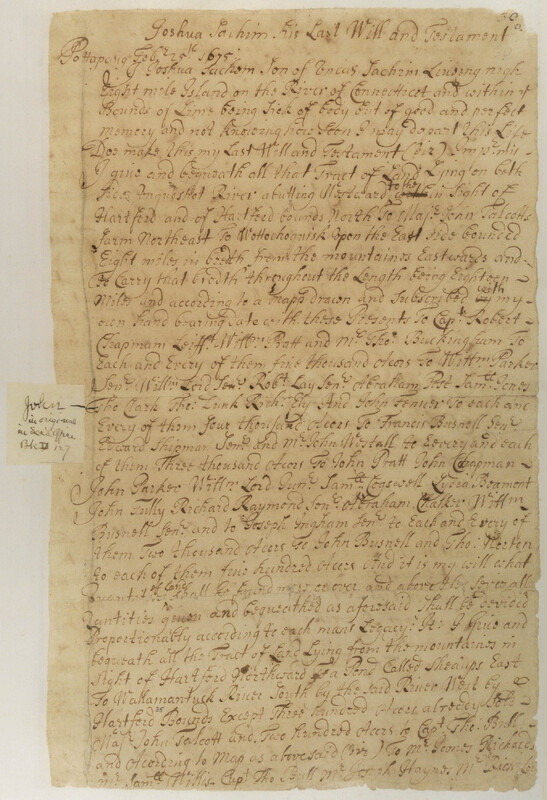 30
a
Joshua Sachim his Last Will and Testament
Pottapaug Febr 29th 1675
I Joshua Sachem Son of Uncas Sachim Liveing nigh
Eight mile Island on the River of Connecticot and within ye
Bounds of Lime being Sick of body but of good and perfect
memory and not knowing how soon I may depart this Life
Doe make this my Last Will and Testament (viz) Impmis
I give and bequeath all that Tract of Land Lying on both
Sides River abutting Westward to the in Sight of
Hartford and of Hartford bounds North To Majr John Talcotts
farm Northeast To upon the East side bounded
Eight miles in bredth from the mountaines Eastwards and
to Carry that bredth throughout the Length being Eighteen
Miles and according to a mapp drawn and Subscribed with my
own hand bearing date with these Presents To Capt Robert
Chapman Leift Willm Pratt and Mr Tho: Buckingham To
Each and Every of them five thousand Acors To Willm Parker
Senr Willm Lord Senr Robt Lay Senr Abraham Post Saml Jones
Tho Clark Tho: Dunk Richd Ely And John Fenner to each and
Every of them four thousand Acors To Francis Busnell Senr
Edward Shipman Senr and Mr John Westall to Every and each
of them Three thousand Acors To John Pratt John Chapman
John Parker Willm Lord Junr Samll Cogswell Lydia Beamont
John Tully Richard Raymond Senr Abraham Chalker Willm
Busnell Senr and to Joseph Ingham Senr to Each and Every of
them Two thousand Acors To John Busnell and Tho: Norten
to each of them five hundred Acors And it is my will what
quantity of Land shall be found more over and above the severall
quantities given and bequeathed as aforesaid Shall be devided
Proportionably according to each mans Legacy: It: I Give and
bequeath all the Tract of Land Lying from the mountaines in
Sight of Hartford Northward to a Pond Called Shealups East
To Wallamantuck River South by the said River West by
Hartford Bounds Except Three hundred Acors already
Majr John Talcott and Two hundred Acors to Capt Tho: Bull
and According to Map as abovesaid (viz) To Mr James Richards
Mr Samll Willis Capt Tho Bull Mr Joseph Haynes Mr Richd Lord
John
in original
in